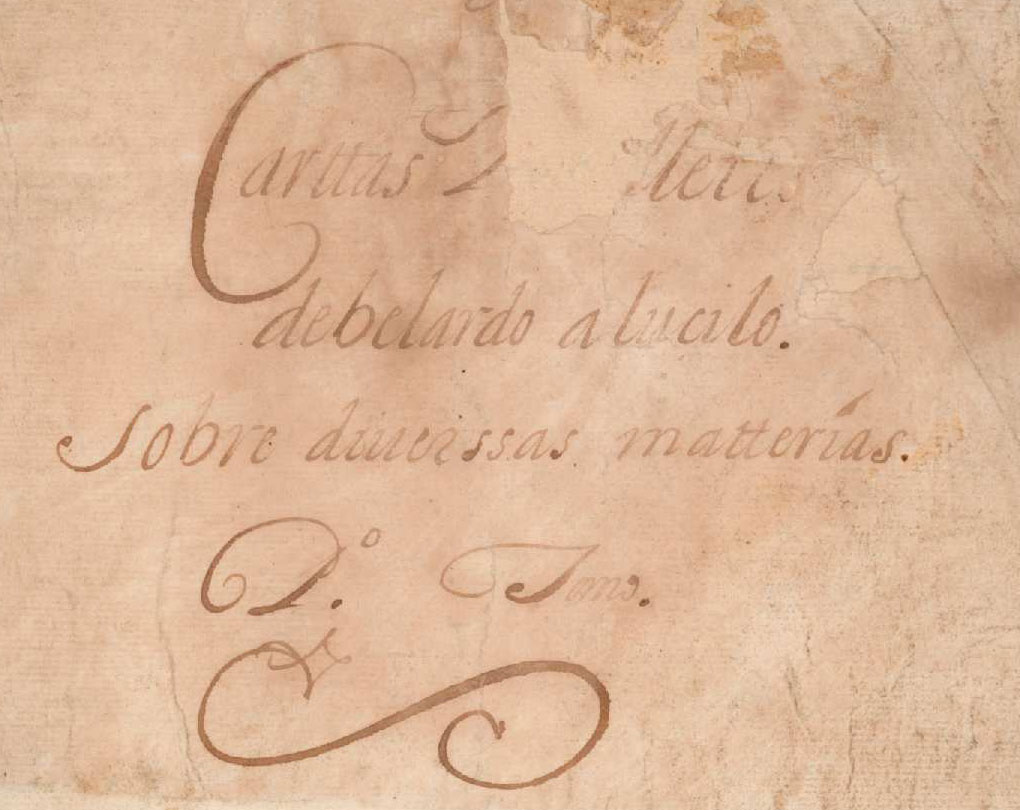 Carttas
debelardo a lucilo.
Sobre diuerssas matterías.
P.º Tomo.